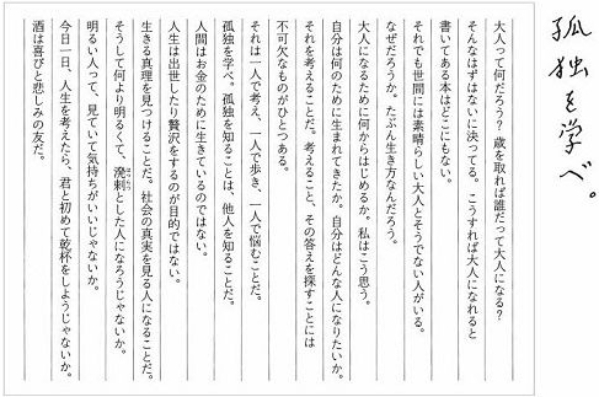 孤独を学べ。
大人って何だろう？ 歳を取れば誰だって大人になる？
そんなはずはないに決ってる。こうすれば大人になれると
書いてある本はどこにもない。
それでも世間には素晴らしい大人とそうでない人がいる。
なぜだろうか。たぶん生き方なんだろう。
大人になるために何からはじめるか。私はこう思う。
自分は何のために生まれてきたか。自分はどんな人になりたいか。
それを考えることだ。考えること、その答えを探すことには
不可欠なものがひとつある。
それは一人で考え、一人で歩き、一人で悩むことだ。
孤独を学べ。孤独を知ることは、他人を知ることだ。
人間はお金のために生きているのではない。
人生は出世したり贅沢をするのが目的ではない。
生きる真理を見つけることだ。社会の真実を見る人になることだ。
そうして何より明るくて、溌剌とした人になろうじゃないか。
はつらつ
明るい人って、見ていて気持ちがいいじゃないか。
今日一日、人生を考えたら、君と初めて乾杯をしようじゃないか。
酒は喜びと悲しみの友だ。